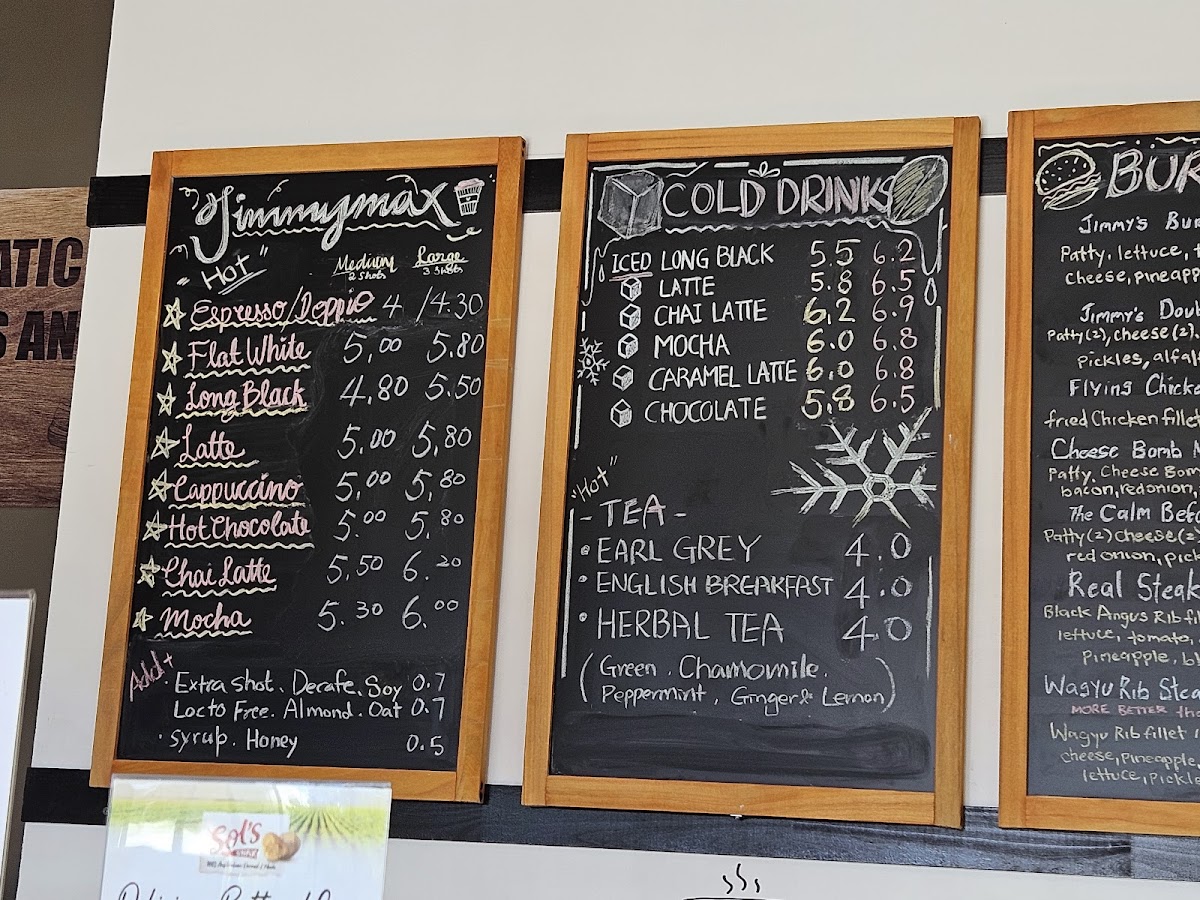 ATIC
S AN
Jimmymax
"Hot"
Medium Large
2 Shots 3 Shots
Espresso/Doppio 4 /4.30
Flat White 5.00 5.80
Long Black 4.80 5.50
Latte 5.00 5.80
Cappuccino 5.00 5.80
Hot Chocolate 5.00 5.80
Chai Latte 5.50 6.20
Mocha 5.30 6.00
Add+
Extra Shot. Decafe. Soy 0.7
Lacto Free. Almond. Oat 0.7
· Syrup. Honey 0.5
Sol's
COLD DRINKS
ICED LONG BLACK 5.5 6.2
LATTE 5.8 6.5
CHAI LATTE 6.2 6.9
MOCHA 6.0 6.8
CARAMEL LATTE 6.0 6.8
CHOCOLATE 5.8 6.5
"Hot"
- TEA -
• EARL GREY 4.0
• ENGLISH BREAKFAST 4.0
• HERBAL TEA 4.0
(Green. Chamomile.
Peppermint, Ginger & Lemon)
BUR
Jimmy's Bur
Patty, lettuce, t
cheese, pineapp
Jimmy's Doub
Patty(2), cheese(2).
pickles, alfal
Flying Chicke
fried Chicken fillet
Cheese Bomb M
Patty, Cheese Bom
bacon, red onion,
The Calm Befo
Patty(2) cheese(2)
red onion, pick
Real Steak
Black Angus Rib fil
lettuce, tomato,
Pineapple, b
Wagyu Rib Stea
MORE BETTER tha
Wagyu Rib fillet
cheese, pineapple,
lettuce, pickle